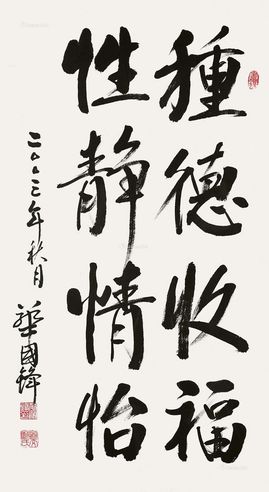 種德收福
性静情怡
二〇〇三年秋月
華國鋒